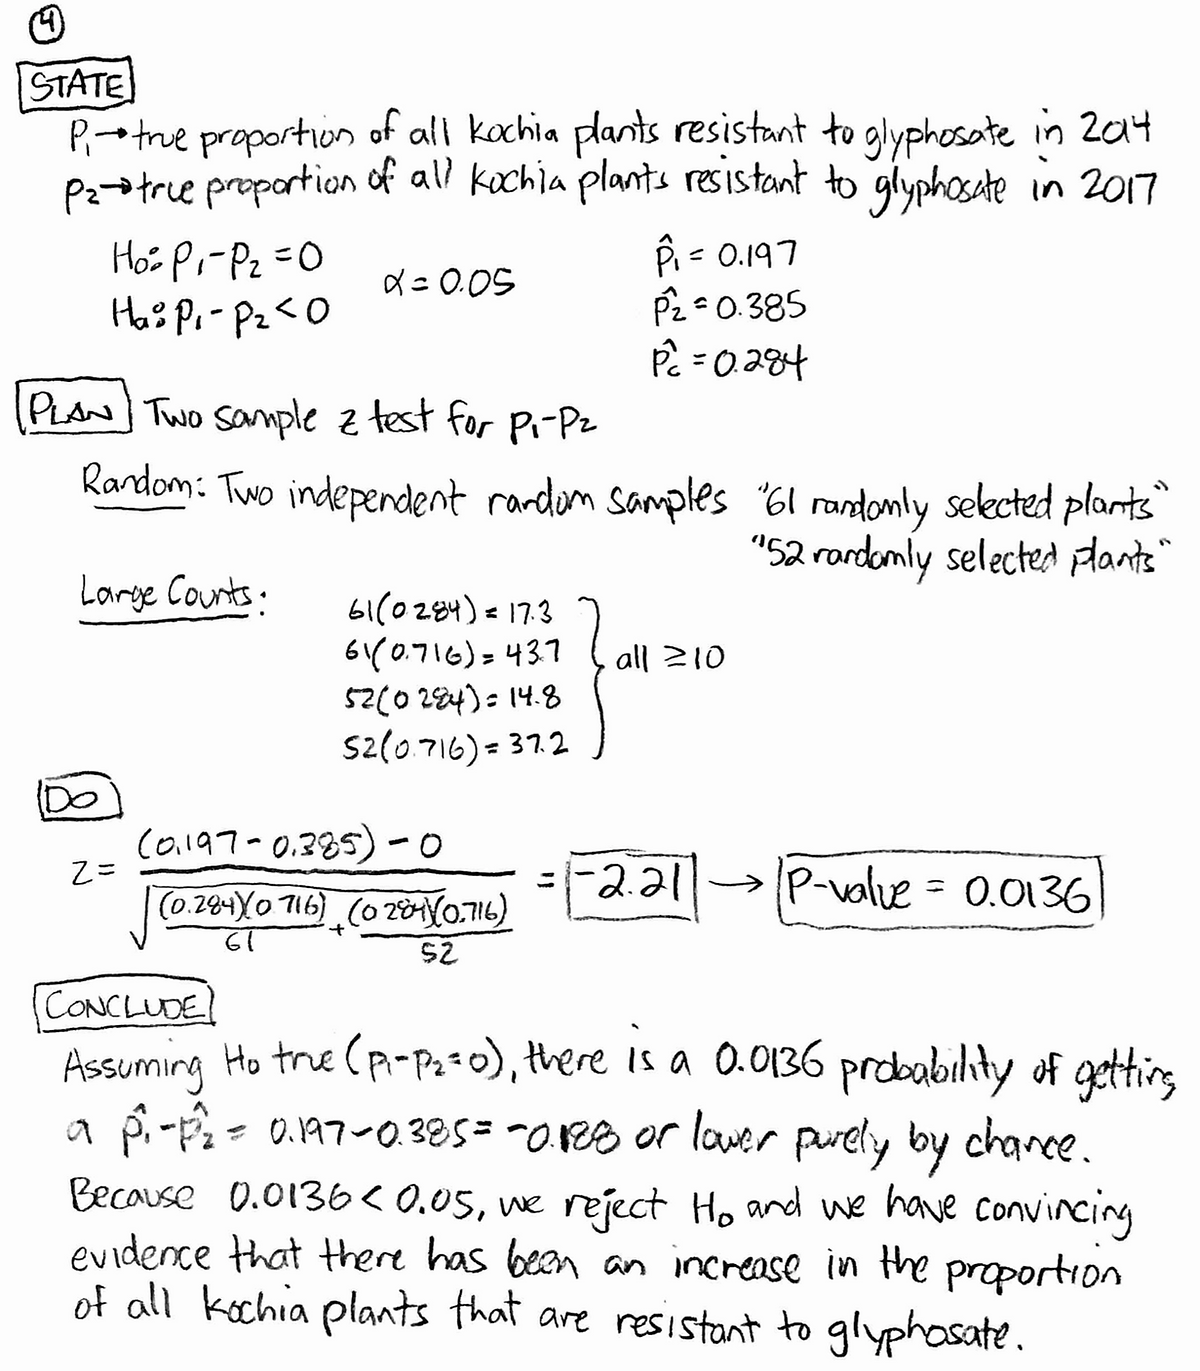 ④
STATE
P₁→true proportion of all kochia plants resistant to glyphosate in 2014
p₂→true proportion of all kochia plants resistant to glyphosate in 2017
H₀: p₁-p₂ = 0
Hₐ: p₁-p₂ < 0
α = 0.05
p̂₁ = 0.197
p̂₂ = 0.385
p̂c = 0.284
PLAN Two sample z test for p₁-p₂
Random: Two independent random samples "61 randomly selected plants"
"52 randomly selected plants"
Large Counts:
61(0.284) = 17.3
61(0.716) = 43.7
52(0.284) = 14.8
52(0.716) = 37.2
all ≥10
DO
z = ((0.197-0.385)-0)/√((0.284)(0.716)/61 + (0.284)(0.716)/52) = -2.21 → P-value = 0.0136
CONCLUDE
Assuming H₀ true (p₁-p₂=0), there is a 0.0136 probability of getting
a p̂₁-p̂₂ = 0.197-0.385 = -0.188 or lower purely by chance.
Because 0.0136 < 0.05, we reject H₀ and we have convincing
evidence that there has been an increase in the proportion
of all kochia plants that are resistant to glyphosate.